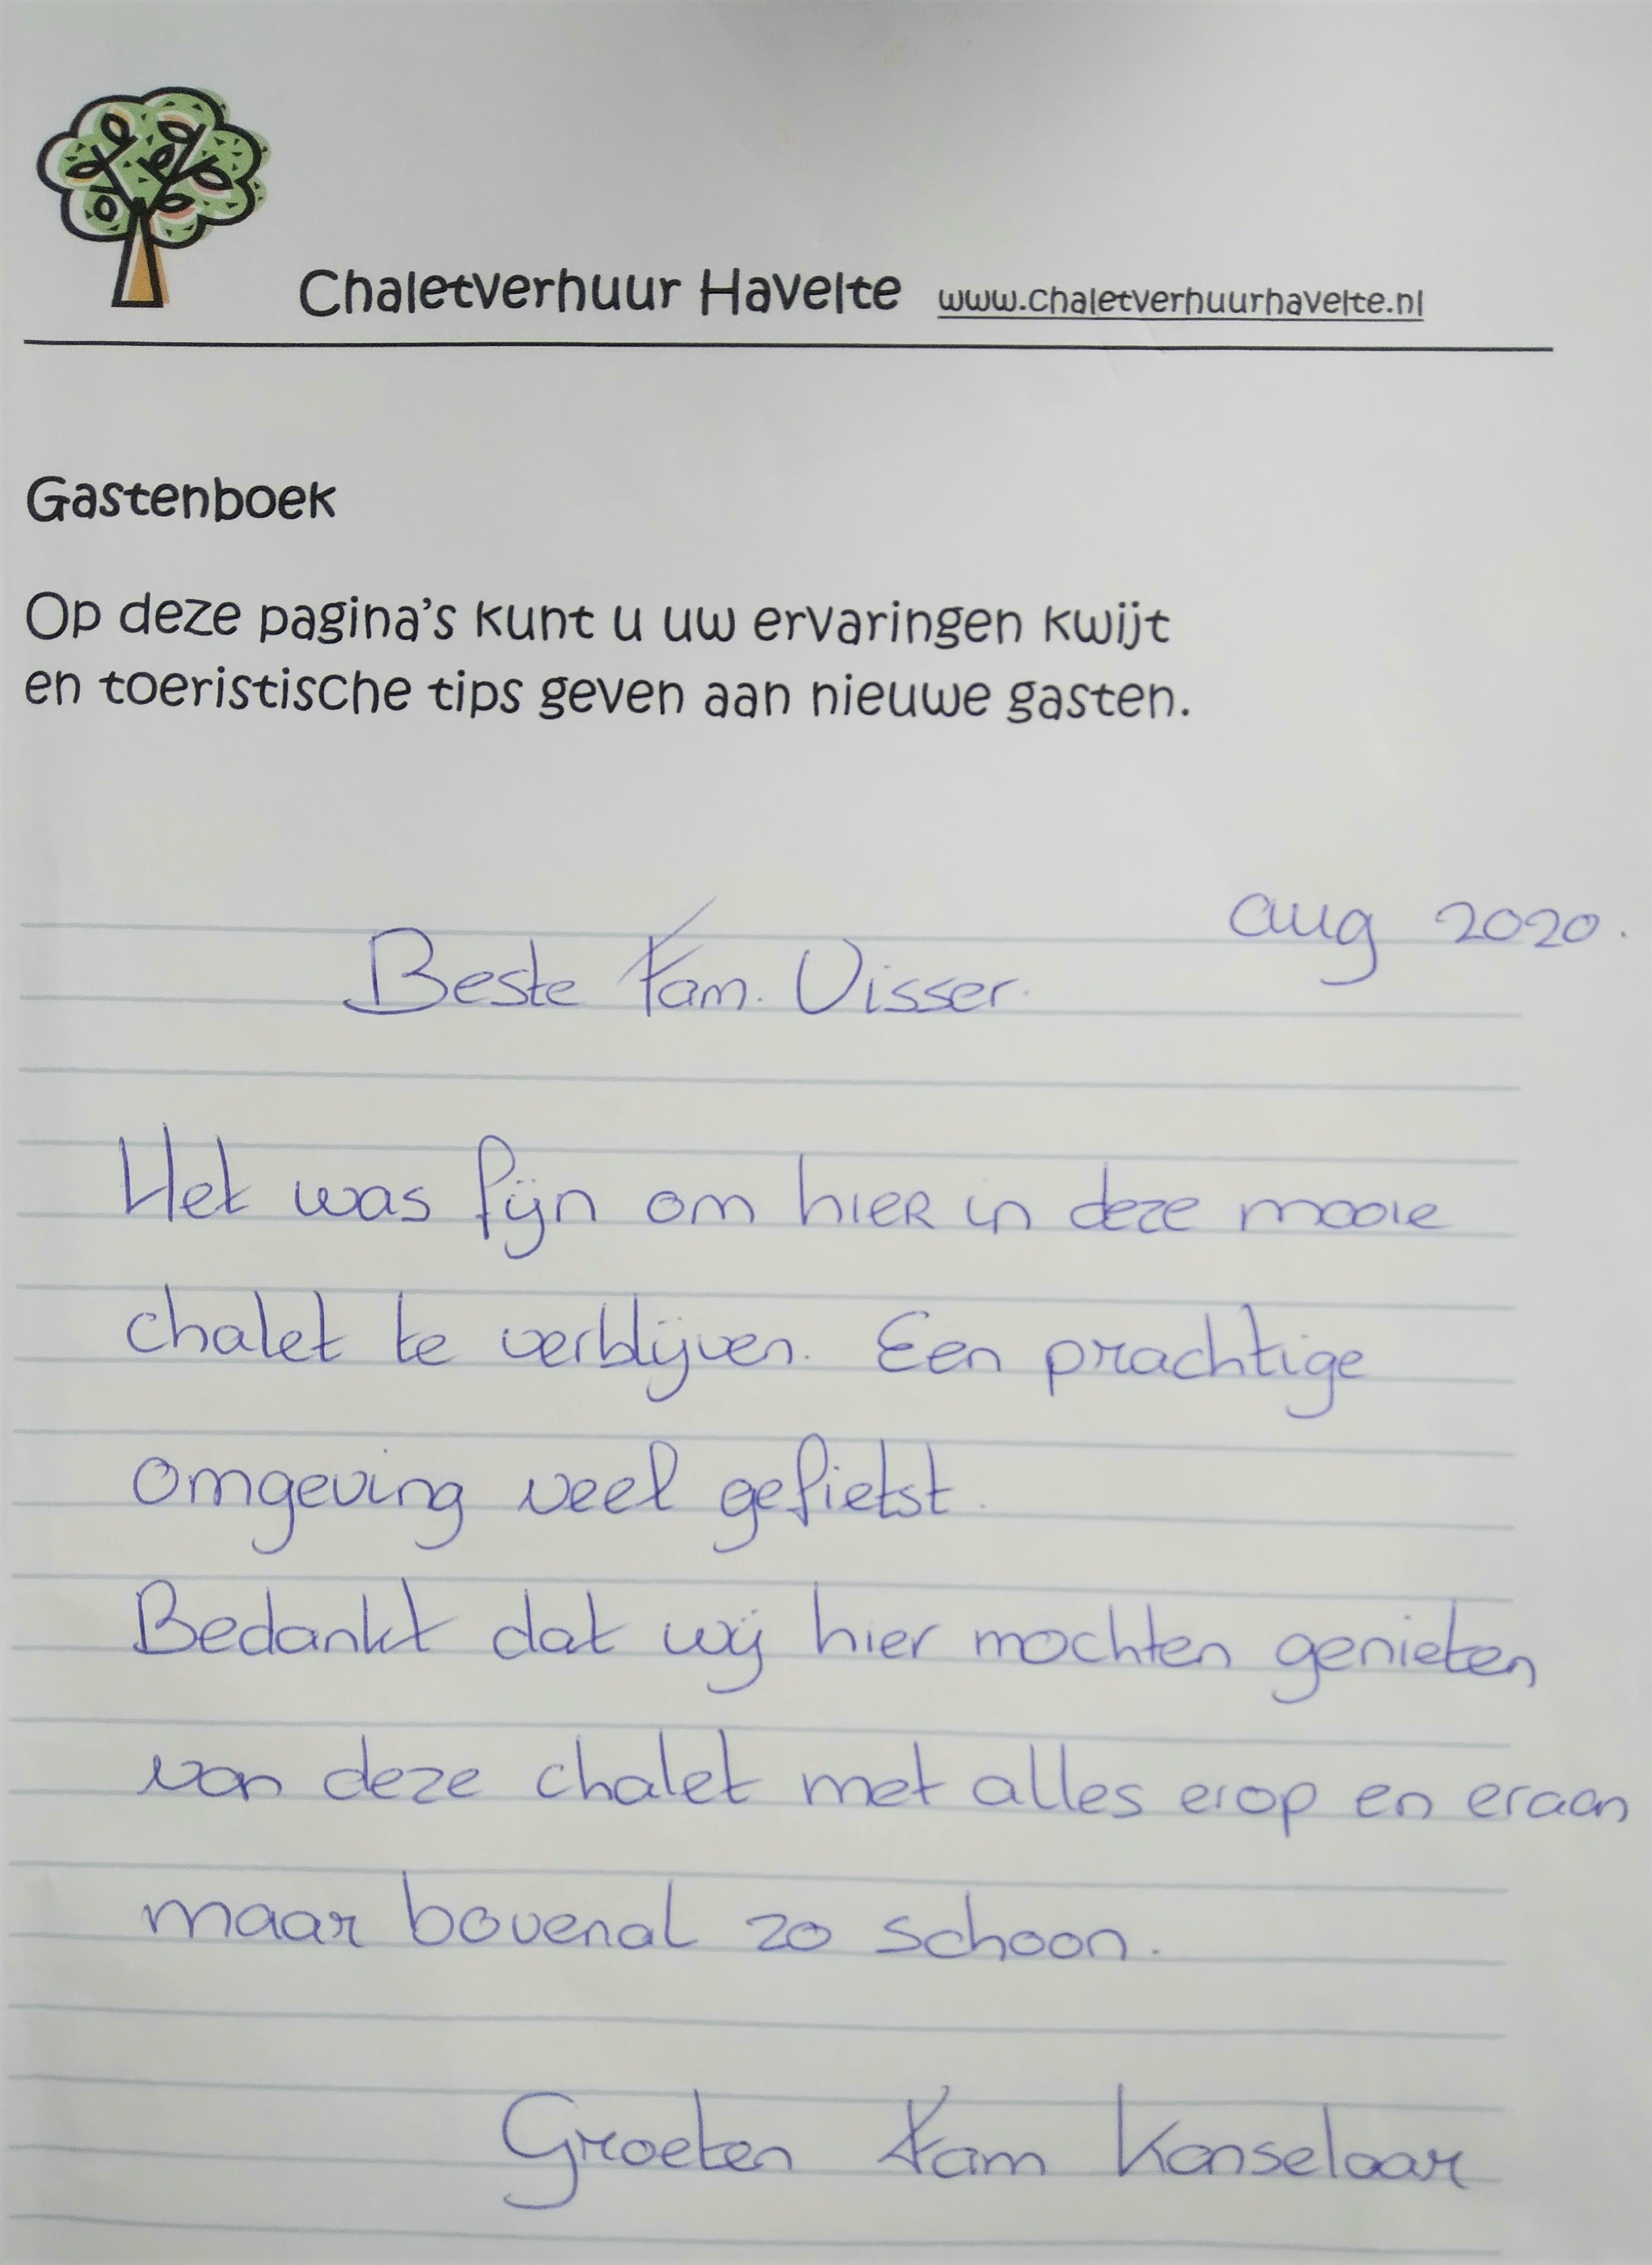 Chaletverhuur Havelte www.chaletverhuurhavelte.nl
Gastenboek
Op deze pagina's kunt u uw ervaringen kwijt
en toeristische tips geven aan nieuwe gasten.
aug 2020.
Beste Fam. Visser.
Het was fijn om hier in deze mooie
chalet te verblijven. Een prachtige
omgeving veel gefietst.
Bedankt dat wij hier mochten genieten
van deze chalet met alles erop en eraan
maar bovenal zo schoon.
Groeten Fam Kanselaar